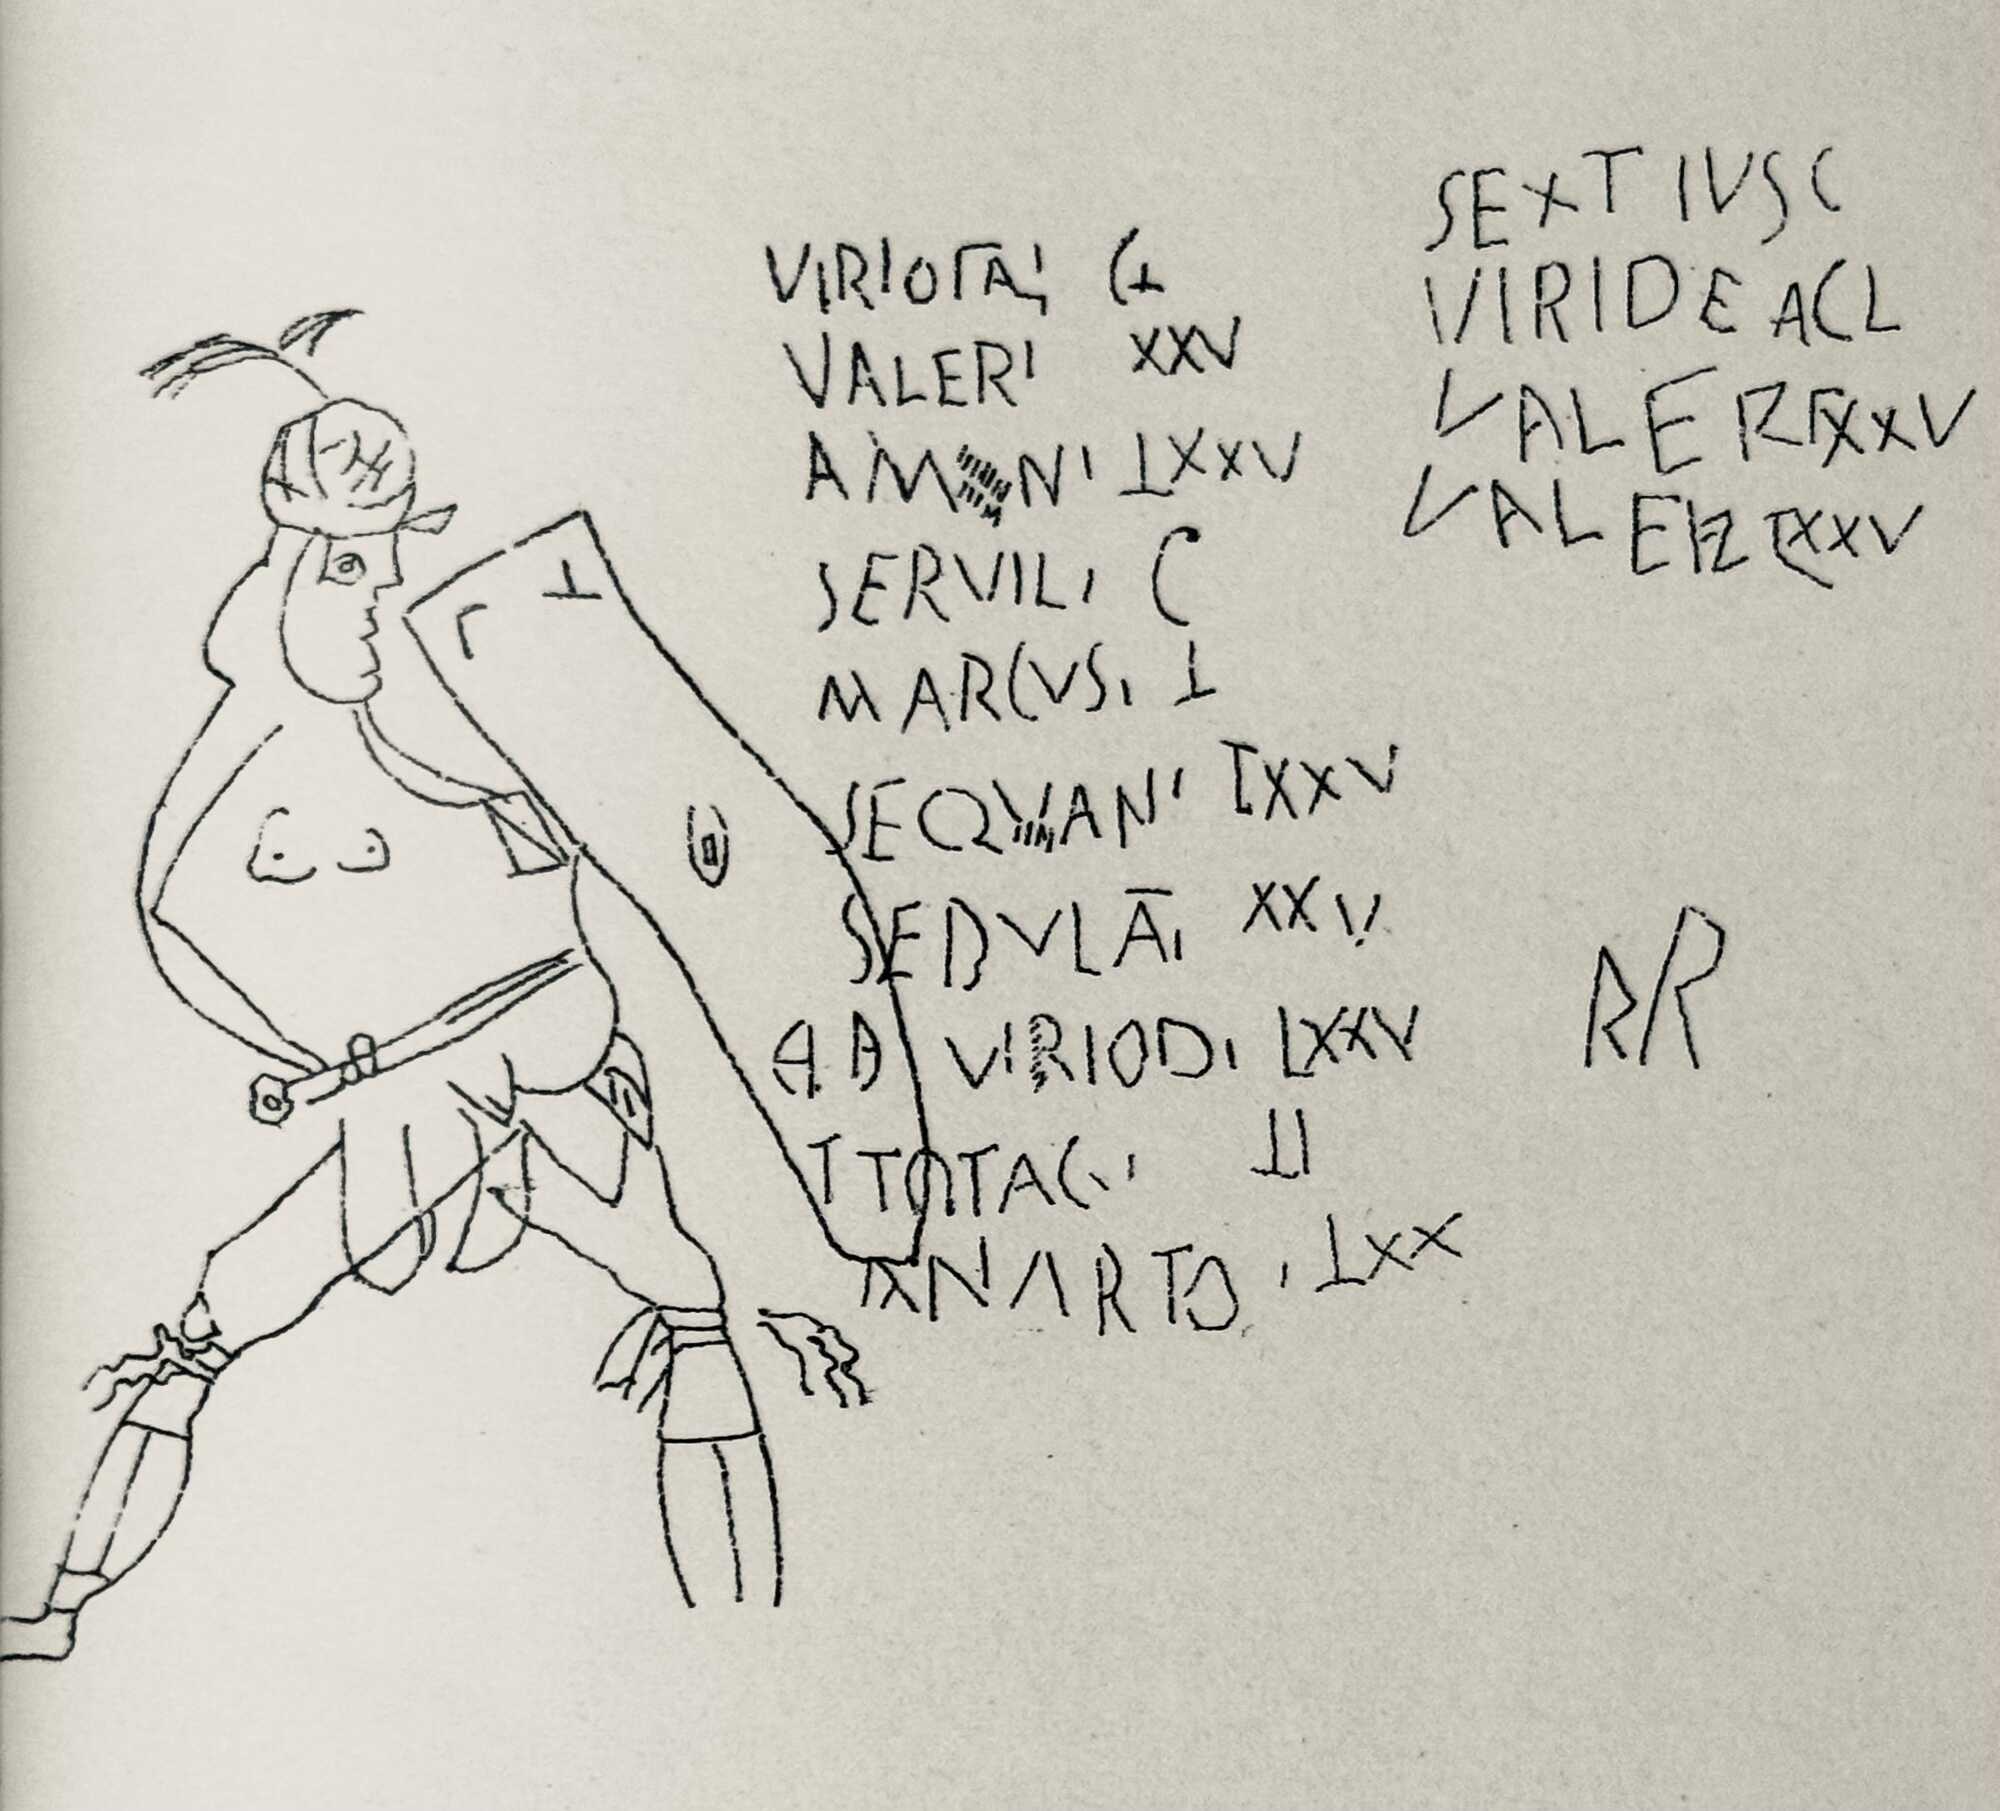 VIRIOTAI C⊥
VALERI XXV
AM NI ⊥XXV
SERVILI C
MARCVSI ⊥
SEQVANI IXXV
SEDVLAI XXV
VIRIODI LXXV
⊥I
⊥XX
SEXTIVS C
VIRIDEA CL
VALER XXV
VALER XXV
RR
L ⊥